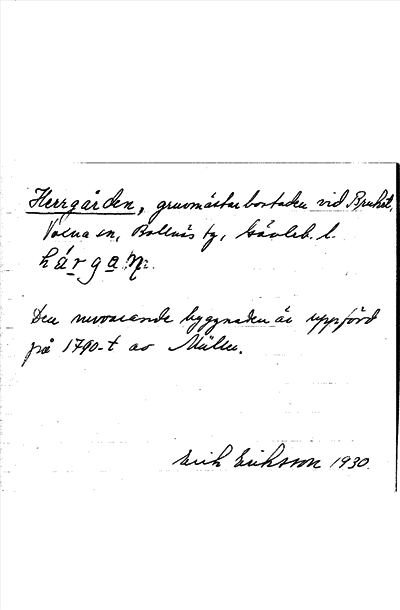 Herrgården, gruvmästarbostaden vid Bruket,
Voxna sn, Bollnäs tg, Gävleb. l.
hárgaṇ:
Den nuvarande byggnaden är uppförd
på 1790-t av Müller.
Erik Eriksson 1930.